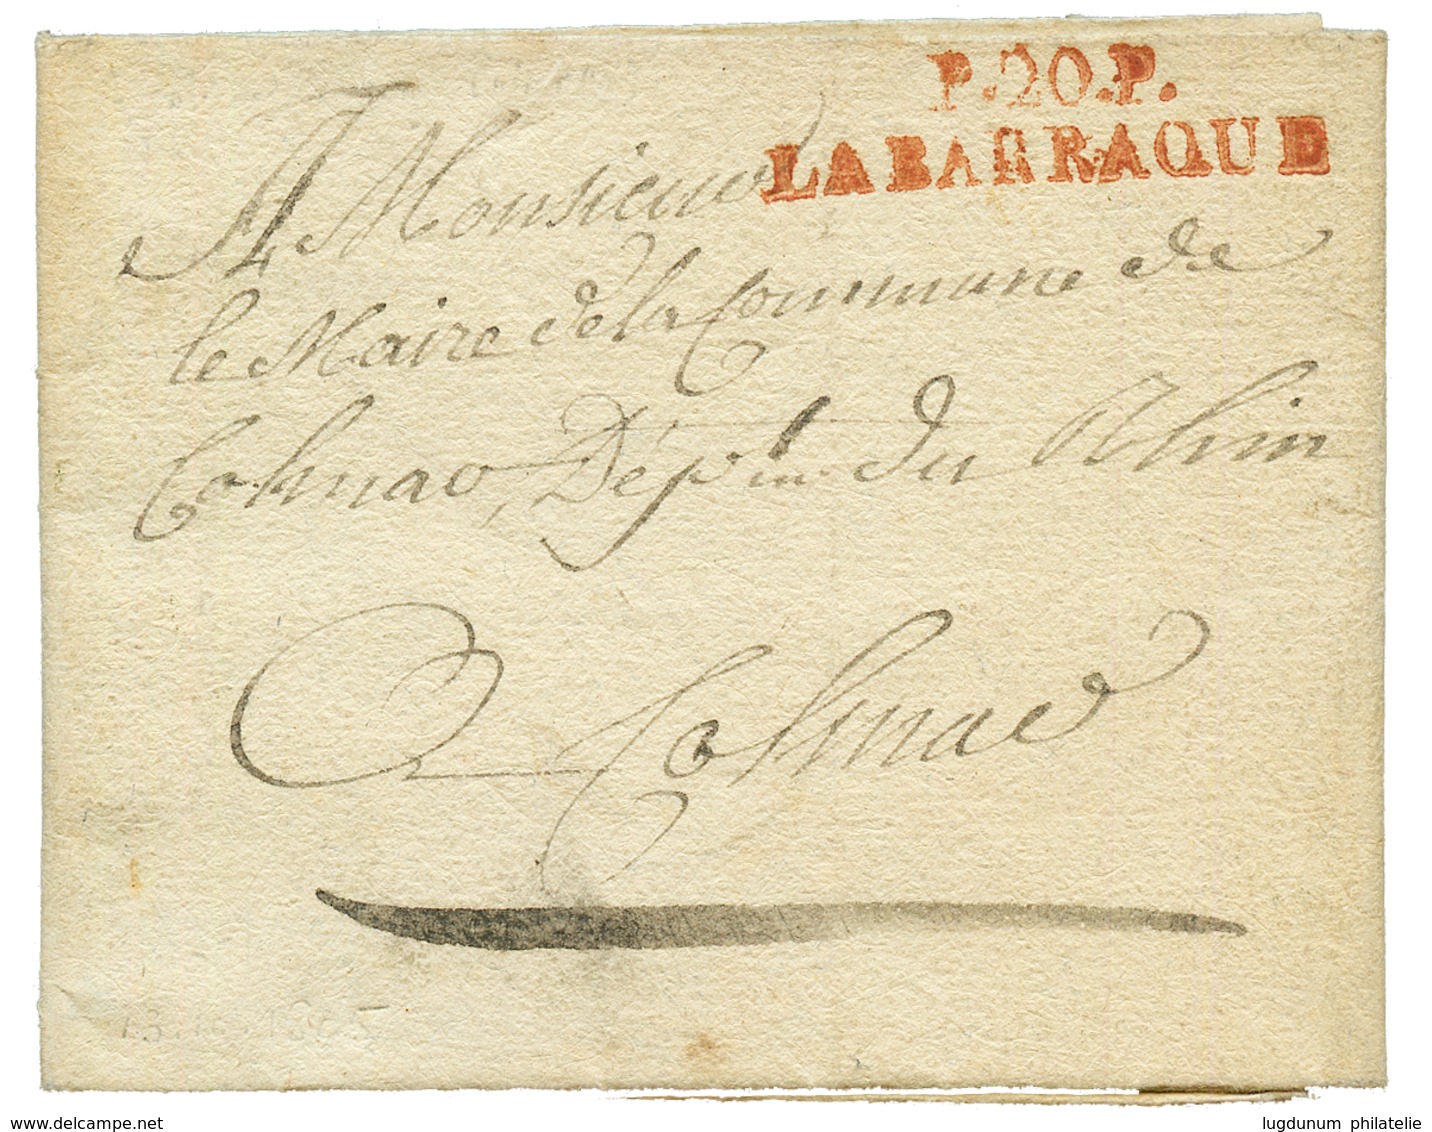 P.20.P.
LABARRAQUE
A Monsieur
le Maire de la Commune de
Colmar, Dép. du Rhin
A Colmar
www.delcampe.net
lugdunum philatelie